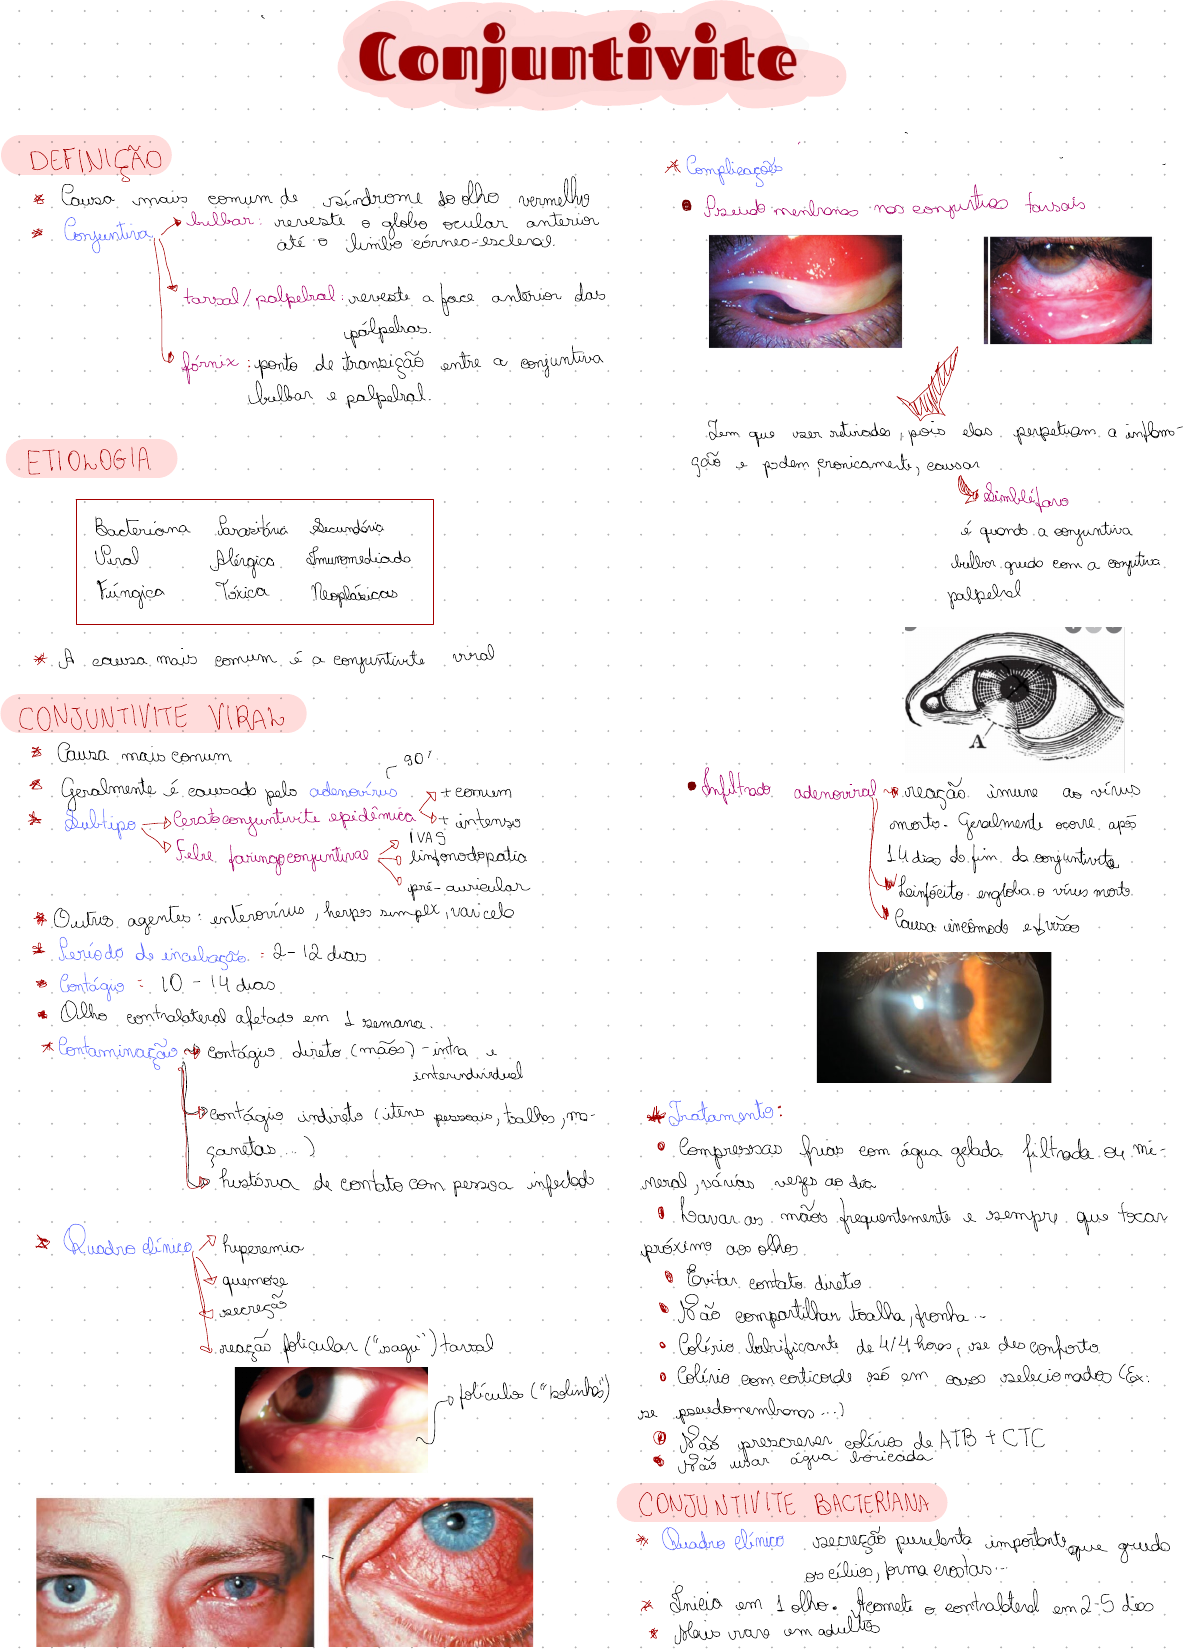 Conjuntivite
DEFINIÇÃO
* Causa mais comum de síndrome do olho vermelho
* Conjuntiva
bulbar: reveste o globo ocular anterior
até o limbo córneo-escleral.
tarsal/palpebral: reveste a face anterior das
pálpebras.
fórnix: ponto de transição entre a conjuntiva
bulbar e palpebral.
ETIOLOGIA
Bacteriana Parasitária Secundária
Viral Alérgica Imunomediada
Fúngica Tóxica Neoplásicas
* A causa mais comum é a conjuntivite viral
CONJUNTIVITE VIRAL
* Causa mais comum
90%
* Geralmente é causado pelo adenovírus
* Subtipo → Ceratoconjuntivite epidêmica
+ comum
+ intenso
Febre faringoconjuntival
IVAS
linfonodopatia
pré-auricular
* Outros agentes: enterovírus, herpes simplex, varicela
* Período de incubação: 2-12 dias
* Contágio: 10 - 14 dias
* Olho contralateral afetado em 1 semana.
* Contaminação → contágio direto (mãos) - intra e
interindividual
contágio indireto (itens pessoais, toalhas, ma-
çanetas...)
história de contato com pessoa infectada
* Quadro clínico
hiperemia
quemose
secreção
reação folicular ("sagu") tarsal
folículos ("bolinhas")
* Complicações
• Pseudomembranas nas conjuntivas tarsais
Tem que ser retiradas, pois elas perpetuam a inflama-
ção e podem cronicamente, causar
Simbléfaro
é quando a conjuntiva
bulbar gruda com a conjutiva
palpebral
A
• Infiltrado adenoviral → reação imune ao vírus
morto. Geralmente ocorre após
14 dias do fim da conjuntivite
Leinfócito engloba o vírus morto.
Causa incômodo e ↓ visão
* Tratamento:
• Compressas frias com água gelada filtrada ou mi-
neral, várias vezes ao dia
• Lavar as mãos frequentemente e sempre que tocar
próximo aos olhos
• Evitar contato direto
• Não compartilhar toalha, fronha...
• Colírio lubrificante de 4/4 horas, se desconforto
• Colírio com corticoide só em casos selecionados (Ex:
se pseudomembranas...)
• Não prescrever colírios de ATB + CTC
• Não usar água boricada
CONJUNTIVITE BACTERIANA
* Quadro clínico secreção purulenta importante, que gruda
os cílios, forma crostas...
* Inicia em 1 olho. Acomete o contralateral em 2-5 dias
* Mais raro em adultos